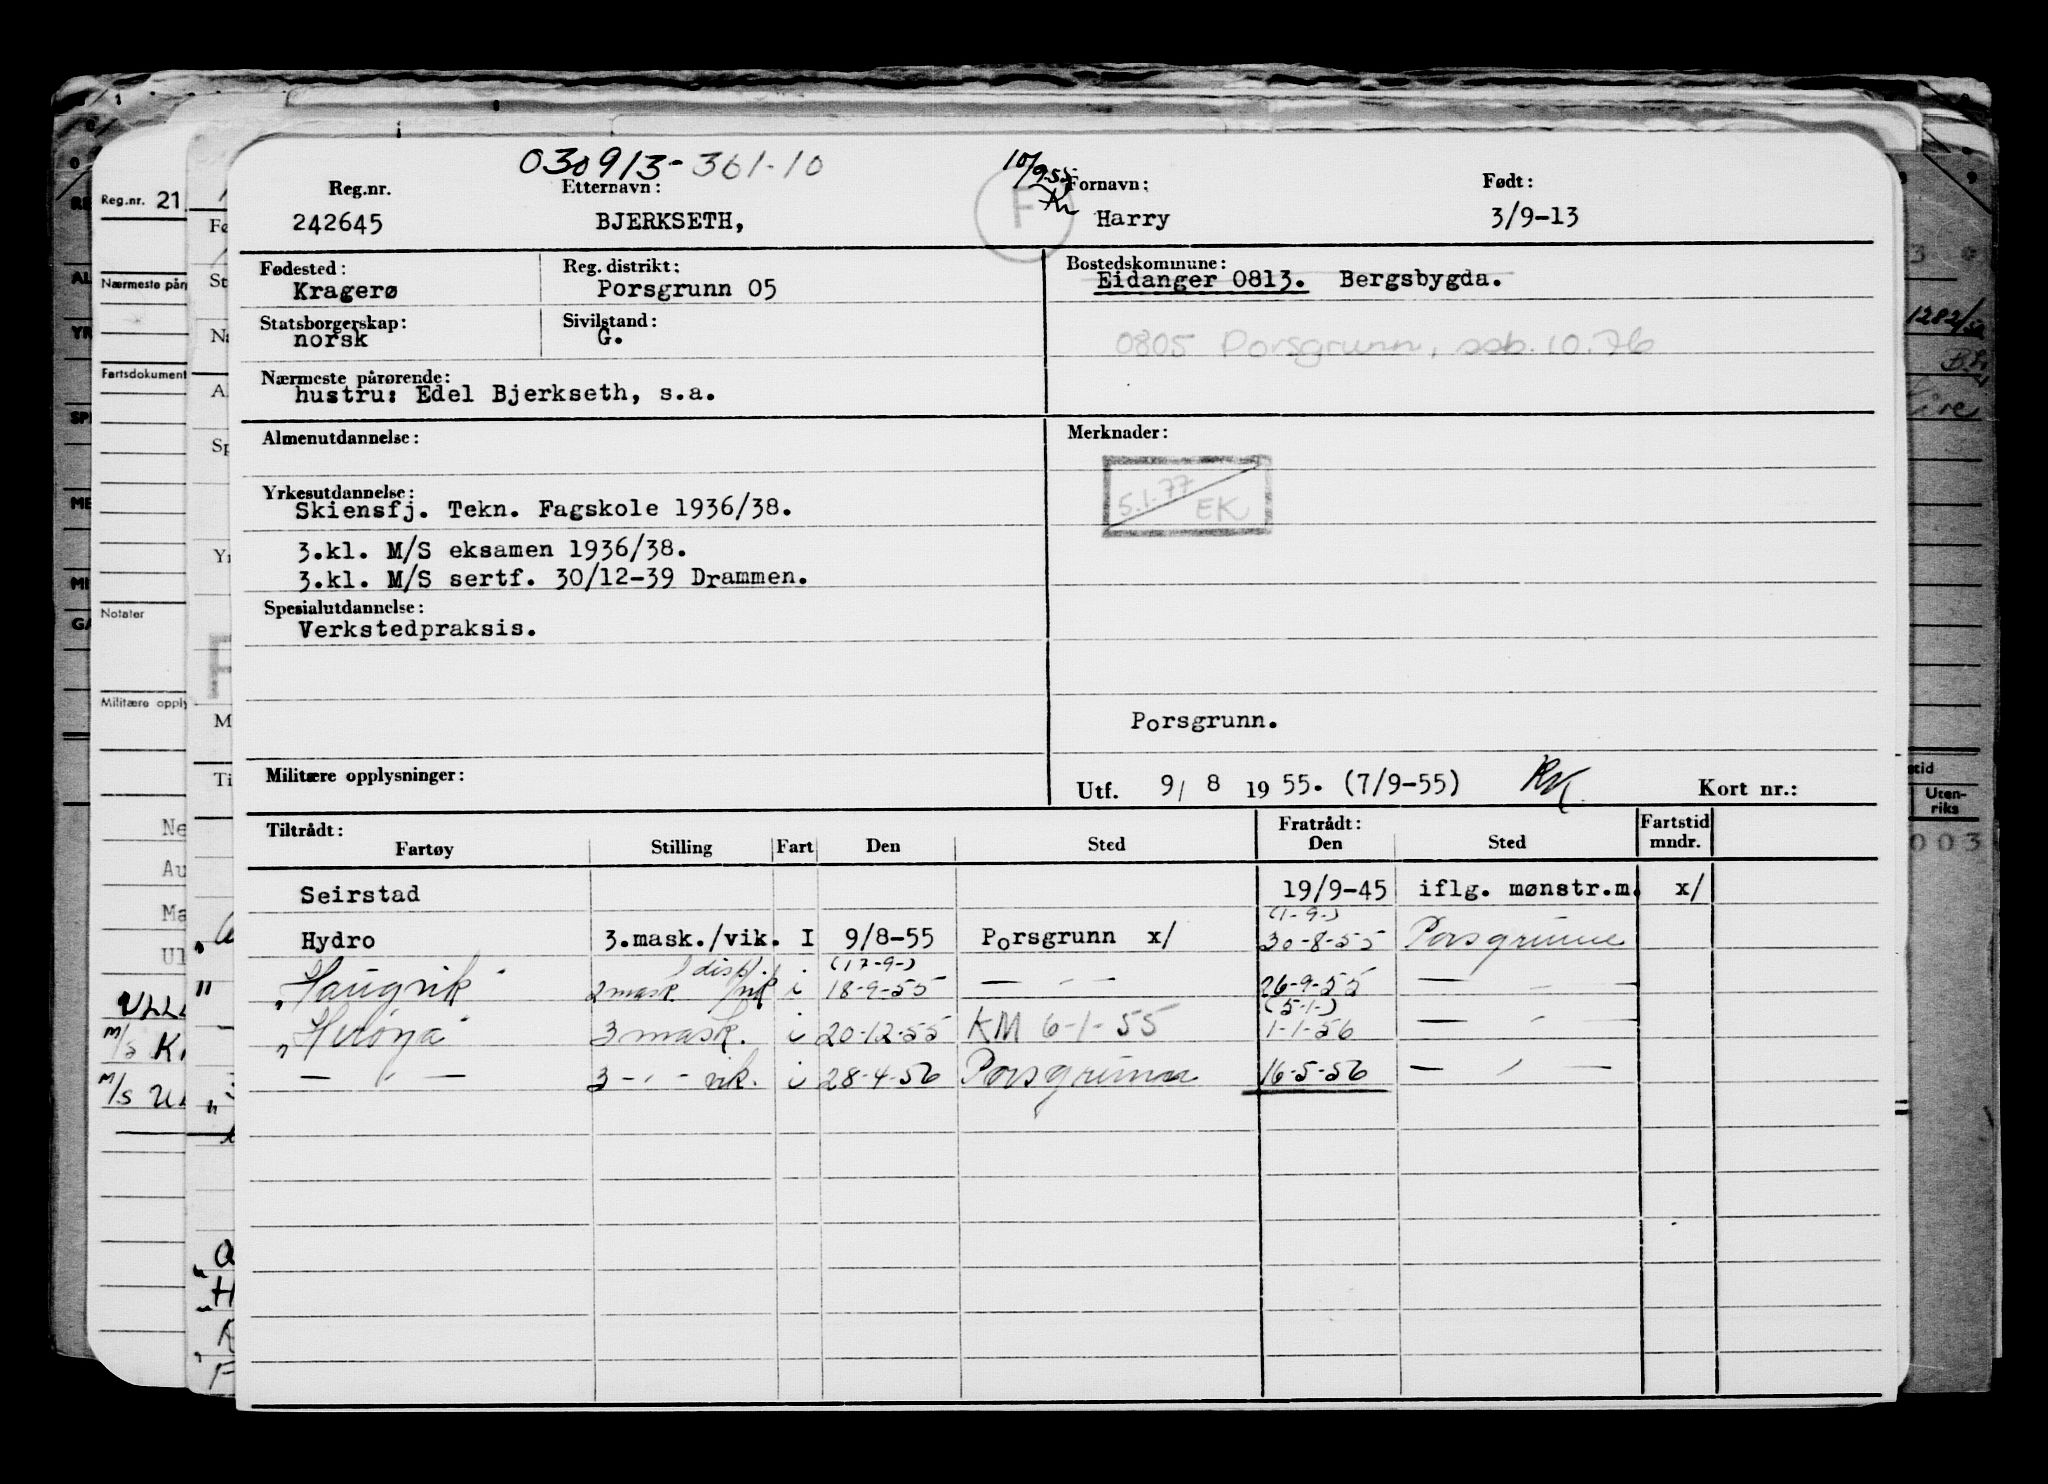 030913-361-10
10/9-55
Reg.nr. Etternavn: F Fornavn: Født:
242645 BJERKSETH, Harry 3/9-13
Fødested: Reg. distrikt: Bostedskommune:
Kragerø Porsgrunn 05 Eidanger 0813. Bergsbygda.
Statsborgerskap: Sivilstand:
norsk G. 0805 Porsgrunn, ssb. 10.76
Nærmeste pårørende:
hustru: Edel Bjerkseth, s.a.
Almenutdannelse: Merknader:
5.1.77 EK
Yrkesutdannelse:
Skiensfj. Tekn. Fagskole 1936/38.
3.kl. M/S eksamen 1936/38.
3.kl. M/S sertf. 30/12-39 Drammen.
Spesialutdannelse:
Verkstedpraksis.
Porsgrunn.
Militære opplysninger: Utf. 9/ 8 1955. (7/9-55) RK Kort nr.:
Tiltrådt: Fratrådt: Fartstid
Fartøy Stilling Fart Den Sted Den Sted mndr.
Seirstad 19/9-45 iflg. mønstr.m. x/
(1-9-)
Hydro 3.mask./vik. I 9/8-55 Porsgrunn x/ 30-8-55 Porsgrunn
disp. (17-9-)
"Haugvik" 2 mask /vik i 18-9-55 — " — 26-9-55 — " —
(5-1-)
"Herøya" 3 mask. i 20-12-55 KM 6-1-55 1-1-56 — " —
— " — 3 - " - vik. i 28-4-56 Porsgrunn 16-5-56 — " —
Reg.nr. 21
Nærmeste pår
Fartsdokument
Notater
Militære opply
Ne
Au
Ma
Ul
ULL
M/S K
M/S U
Fø
St
Na
Al
Sp
Yr
M
Ti
1282/52
Uten-
riks
003